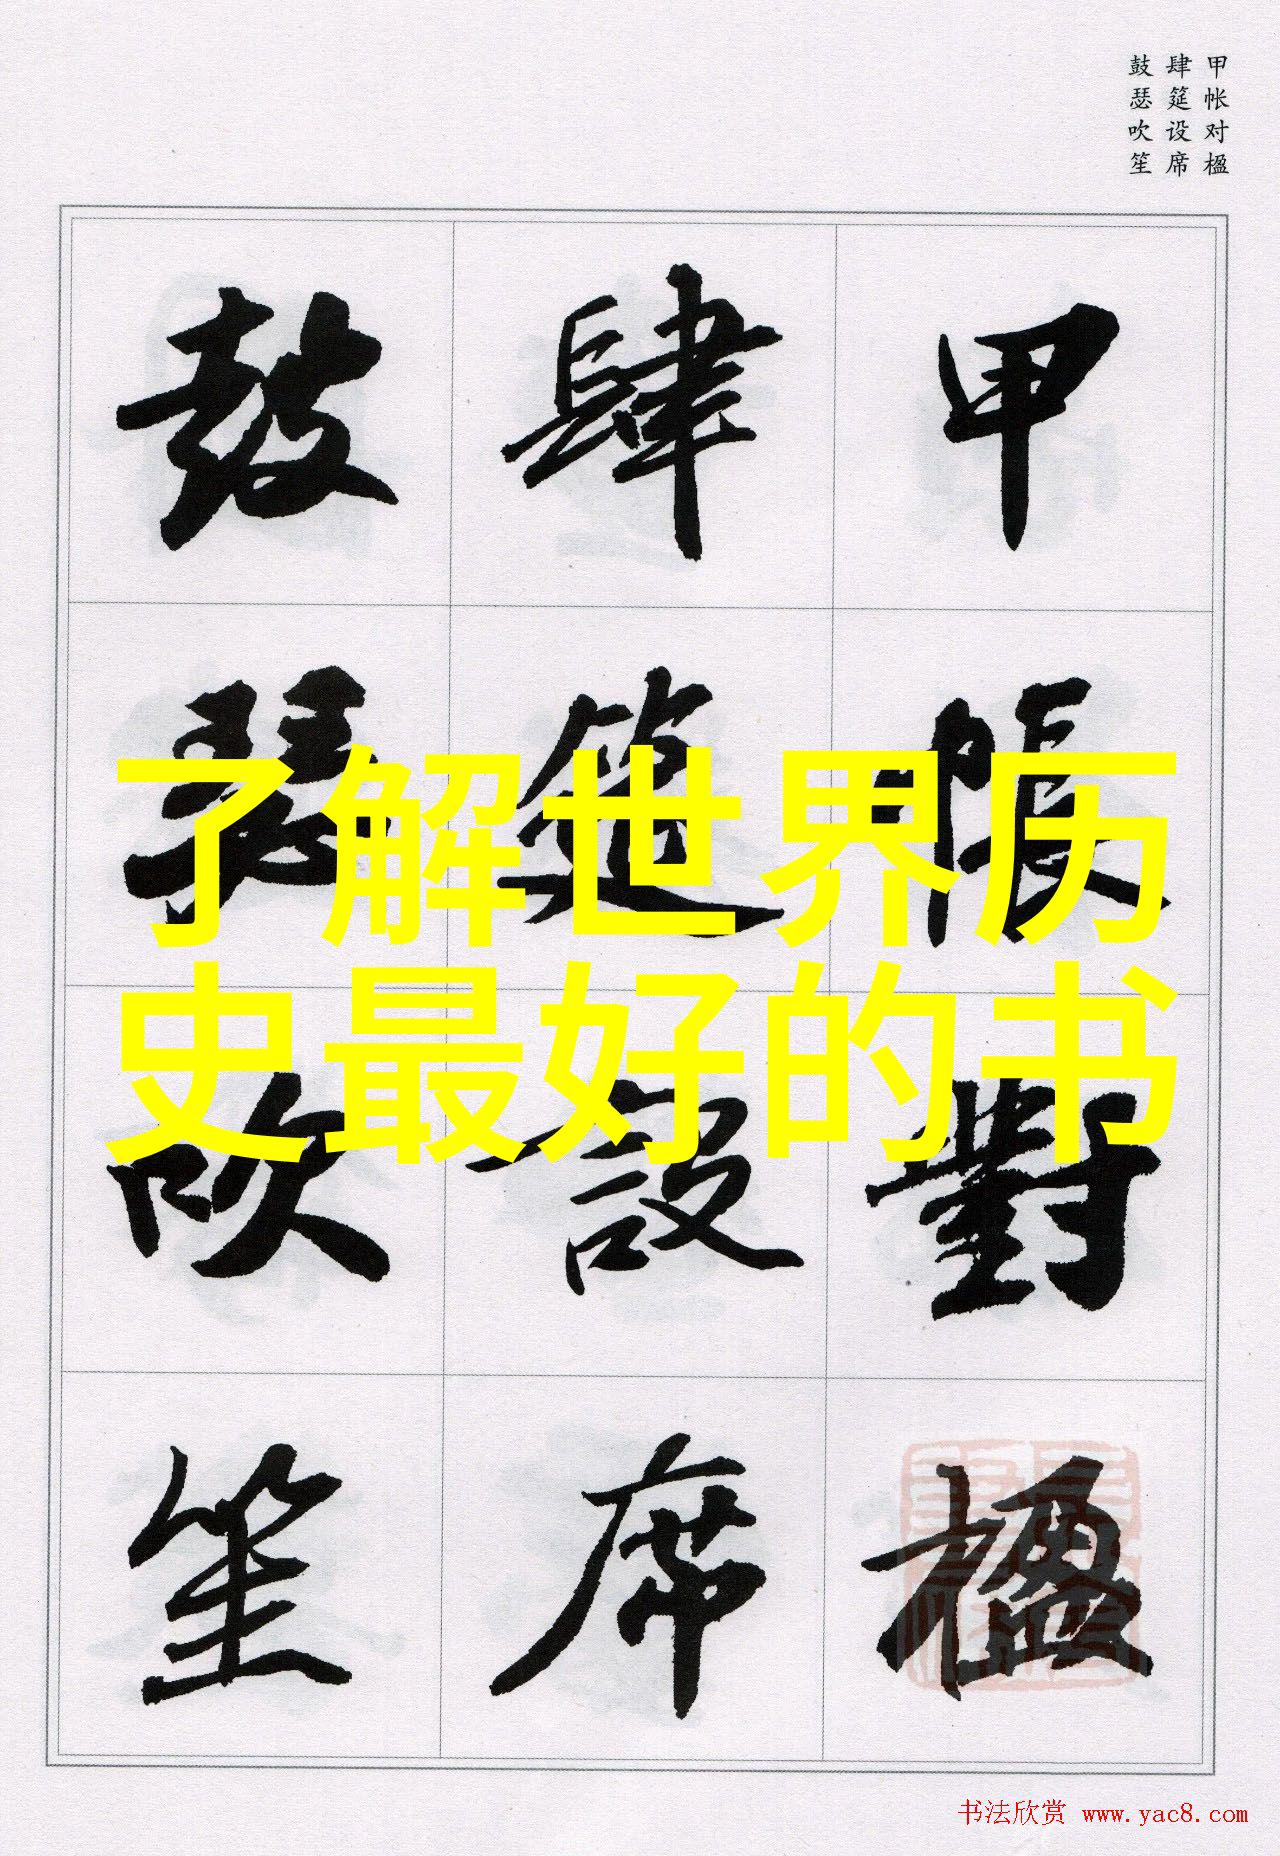 甲帐对楹
肆筵设席
鼓瑟吹笙
甲帳對楹
肆筵設席
鼓瑟吹笙
了解世界历
史最好的书
书法欣赏 www.yac8.com